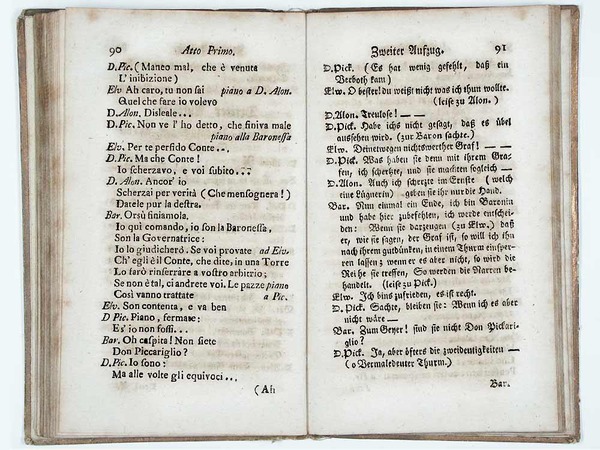 90 Atto Primo.
D. Pic. (Maneo mal, che è venuta
L' inibizione)
Elv Ah caro, tu non sai piano a D. Alon.
Quel che fare io volevo
D. Alon. Disleale...
D. Pic. Non ve l' ho detto, che finiva male
piano alla Baronessa
Elv. Per te perfido Conte...
D. Pic. Ma che Conte!
Io scherzavo, e voi subito...
D. Alon. Ancor' io
Scherzai per verità (Che mensognera!)
Datele pur la destra.
Bar. Orsù finiamola.
Io qui comando, io son la Baronessa,
Son la Governatrice:
Io lo giudicherò. Se voi provate ad Elv.
Ch' egli è il Conte, che dite, in una Torre
Lo farò rinserrare a vostro arbitrio;
Se non è tal, ci andrete voi. Le pazze piano
Così vanno trattate a Pic.
Elv. Son contenta, e va ben
D Pic. Piano, fermase:
Es' io non fossi...
Bar. Oh caspita! Non siete
Don Piccariglio?
D. Pic. Io sono:
Ma alle volte gli equivoci...
(Ah
Zweiter Aufzug. 91
D. Pick. (Es hat wenig gefehlt, daß ein
Verboth kam)
Elw. O bester! du weißt nicht was ich thun wollte.
(leise zu Alon.)
D. Alon. Treulose! — —
D. Pick. Habe ichs nicht gesagt, daß es übel
aussehen wird. (zur Baron sachte.)
Elw. Deinetwegen nichtswerther Graf! — —
D. Pick. Was haben sie denn mit ihrem Gra-
fen, ich scherzte, und sie machten sogleich —
D. Alon. Auch ich scherzte im Ernste (welch
eine Lügnerin) geben sie ihr nur die Hand.
Bar. Nun einmal ein Ende, ich bin Baronin
und habe hier zubefehlen, ich werde entschei-
den: Wenn sie darzeugen (zu Elw.) daß
er, wie sie sagen, der Graf ist, so will ich ihn
nach ihrem gutdünken, in einem Thurm einsper-
ren lassen; wenn er es aber nicht, so wird die
Reihe sie treffen, So werden die Narren be-
handelt. (leise zu Pick.)
Elw. Ich bins zufrieden, es ist recht.
D. Pick. Sachte, bleiben sie: Wenn ich es aber
nicht wäre —
Bar. Zum Geyer! sind sie nicht Don Pickari-
glio?
D. Pick. Ja, aber öfters die zweideutigkeiten —
(o Vermaledeuter Thurm.)
Bar.